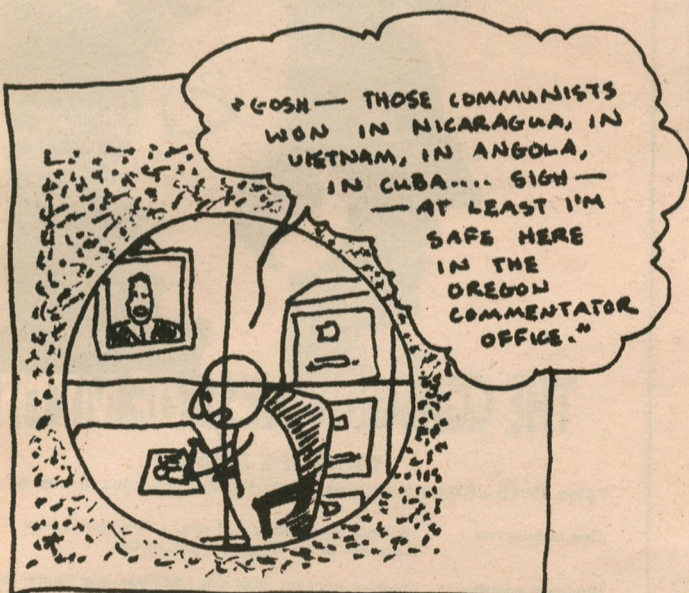 "GOSH — THOSE COMMUNISTS
WON IN NICARAGUA, IN
VIETNAM, IN ANGOLA,
IN CUBA.... SIGH —
— AT LEAST I'M
SAFE HERE
IN THE
OREGON
COMMENTATOR
OFFICE."